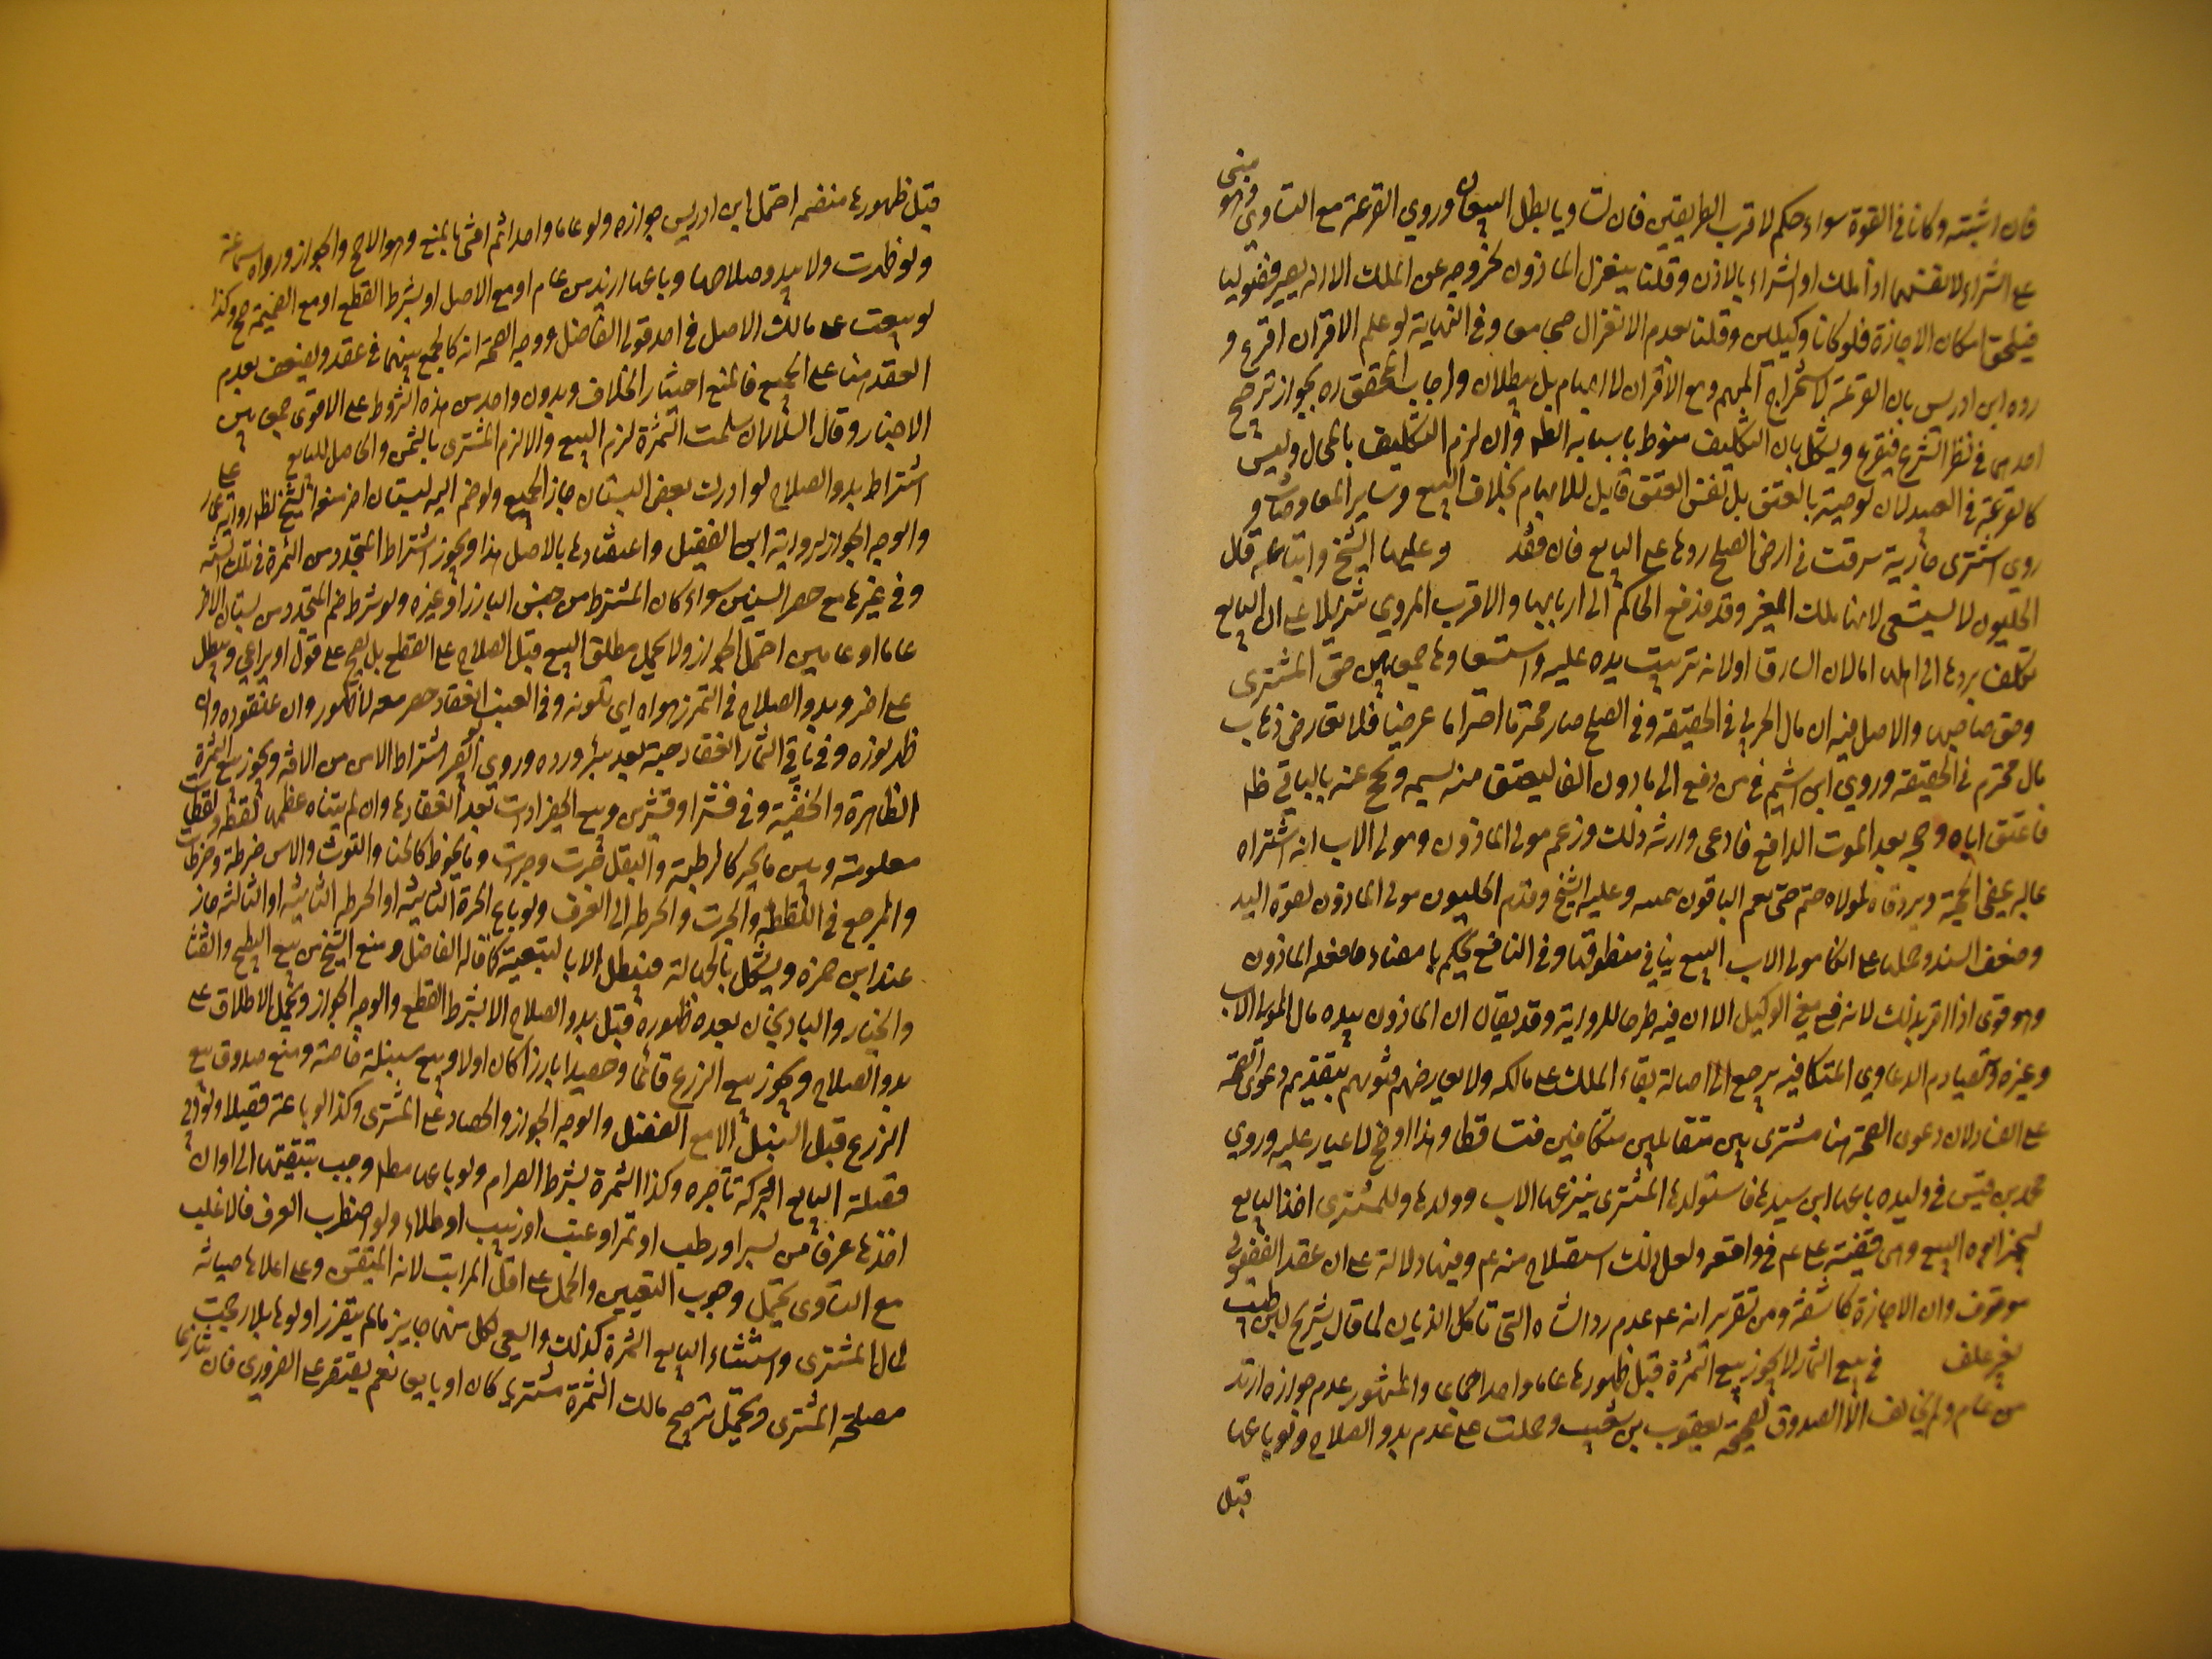 فان اشبته وكانا في القوة سواء حكم لاقرب الطريقين فان تساويا بطل البيعان وروي القرعة مع التساوي وهو مبنى
على الشراء لانفسهما اذا ملك او الشراء بالاذن وقلنا ينعزل الماذون لخروجه عن الملك الا انه يصير فضوليا
فيلحق احكام الاجازة فلو كانا وكيلين وقلنا بعدم الانعزال صحا معا وفي النهاية لو علم الاقتران اقرع و
رده ابن ادريس بان القرعة لاستخراج المبهم ومع الاقتران لا ابهام بل يبطلان واجاب المحقق ره بجواز ترجيح
احدهما في نظر الشرع فيقرع ويشكل بان التكليف منوط باسبابه الظاهرة وان لزم التكليف بالمحال وليس
كالقرعة في العبيد لان الوصية بالعتق بل نفس العتق قابل للابهام بخلاف البيع وساير المعاوضات و
روي اشترى جارية سرقت من ارض الصلح ردها على البايع فان فقد وعليها الشيخ واتباعه قال
الحليون لا تستسعى لانها ملك الغير وقد تدفع الى الحاكم الى اربابها والاقرب المروي تنزيلا على ان البايع
تكلف بردها الى اهلها اما لانه السارق او لانه ترتبت يده عليه واستسعاؤها جمع بين حق المشتري
وحق صاحبها والاصل فيه ان مال الحربي فيء في الحقيقة وفي الصلح صار محترما احتراما عرضيا فلا يعارض ذهاب
مال محترم في الحقيقة وروي ابن اشيم في من دفع الى ماذون الفا ليعتق منه نسمه ويحج عنه بالباقي
فاعتق اباه وحج بعد الموت الدافع فادعى وارثه ذلك وزعم مولى الماذون ومولى الاب انه اشتراه
بماله يمضي الحجة ويرد قنا لمولاه حتى يقيم الباقون بينة وعليه الشيخ وقدم الحليون مولى الماذون لقوة اليد
وضعف السند وحملها على انكار مولى الاب البيع ينافي منطوقها وفي النافع يحكم بامضاء ما فعله الماذون
وهو قوي اذا اقر بذلك لانه في معنى الوكيل الا ان فيه طرحا للرواية وقد يقال ان الماذون بيده مال لمولى الاب
وغيره وبتصادم الدعاوي المتكافئة يرجع الى اصالة بقاء الملك على مالكه ولا يعارضهم فتويهم بتقديم دعوى الصحة
على الفساد لان دعوى الصحة هنا مشترك بين متقابلين متكافئين فتساقطا وهذا اوضح لا غبار عليه وروي
محمد بن قيس في وليدة باعها ابن سيدها فاستولدها المشتري ينتزعها الاب وولدها وللمشتري اخذ البايع
ليجيز ابوه البيع وهي قضية علي ع في واقعة ولعل ذلك استصلاح منه ع وفيها دلالة على ان عقد الفضولي
موقوف وان الاجازة كاشفة ومن تقريرانه ع عدم رد الشاه التي تاكل الذبان لما قال شريح لبن طيب
بغير علف في بيع الثمار لا يجوز بيع الثمرة قبل ظهورها عاما واحدا اجماعا والمشهور عدم جوازه ازيد
من عام ولم يخالف الا الصدوق لصحيحة يعقوب بن شعيب وحملت على عدم بدو الصلاح ولو باعها
قبل
قبل ظهورها منضمه احتمل ابن ادريس جوازه ولو عاما واحدا ثم افتى بالمنع وهو الاصح والجواز ورواه سماعة
ولو ظهرت ولا يبدو صلاحها وباعها ازيد من عام او مع الاصل او بشرط القطع او مع الضميمة صح وكذا
لو بيعت على مالك الاصل في احد قولي الفاضل ووجه الصحة انه كالجمع بينهما في عقد ويضعف بعدم
العقد هنا على الجميع فالمنع اختيار الخلاف وبدون واحد من هذه الشروط على الاقوى جمعا بين
الاخبار وقال السلار ان سلمت الثمرة لزم البيع والا لزم المشتري بالثمن والحاصل للبايع على
اشتراط بدو الصلاح لو ادركت بعض البستان جاز الجميع ولو ضم اليه بستان اخر منعه الشيخ لظاهر رواية عمار
والوجه الجواز لرواية ابن الفضيل واعتضادها بالاصل هذا ويجوز اشتراط المتجدد من الثمرة في تلك السنة
وفي غيرها مع حصر السنين سواء كان المشترط من جنس البارز او غيره ولو شرط ضم المتجدد من بستان الاخر
عاما او عامين احتمل الجواز ولا يحمل مطلق البيع قبل الصلاح على القطع بل يصح على قول او يراعي ويبطل
على اخر وبدو الصلاح في التمر زهواه اي تلونه وفي العنب انعقاد حصرمه لا ظهور وان عنقوده وان
ظهر نوره وفي باقي الثمار انعقاد حبه بعد تناثر ورده وروي الفقر اشتراط الامن من الافة ويجوز بيع الثمرة
الظاهرة والخفية وفي قشر او قشرين وبيع الخضراوات بعد انعقادها وان لم يتناه عظمها لقطة ولقطات
معلومة وبين ما يجز كالرطبة والبقل جزت وجزت وما يخرط كالحنا والتوت والاس خرطة وخرطات
والمرجع في اللقطة والجزت والخرطة الى العرف ولو باع الجزة الثانية او الخرطة الثانية او الثالثة جاز
عند ابن حمزه ويشكل بالجهالة فيبطل الا بالتبعية كما قاله الفاضل ومنع الشيخ من بيع البطيخ والقثا
والخيار والباذنجان بعده ظهوره قبل بدو الصلاح الا بشرط القطع والوجه الجواز ويحمل الاطلاق على
بدو الصلاح ويجوز بيع الزرع قائما وحصيدا بارزا كان اولا وبيع سنبله خاصة ومنع صدوق بيع
الزرع قبل السنبل الا مع القصل والوجه الجواز والحصاد على المشتري وكذا لو باعه قصيلا ولو اتى
فصله البايع او تركه تاجره وكذا الثمرة بشرط الصرام ولو باعها مطلقا وجب تبقيتها الى اوان
اخذها عرفا من بسر او رطب او تمر او عنب او زبيب او طلاء ولو اضطرب العرف فالاغلب
مع التساوي يحتمل وجوب التعيين والحمل على اقل المراتب لانه المتيقن وعلى اعلاها صيانة
لمال المشتري واستثناء البايع الثمرة كذلك والسعي لكل منهما جايز ما لم يتضرر ولو تقابلا رجحت
مصلحة المشتري ويحتمل ترجيح مالك الثمرة مشتريا كان او بايعا نعم يقتصر على الضروري فان تنازعا